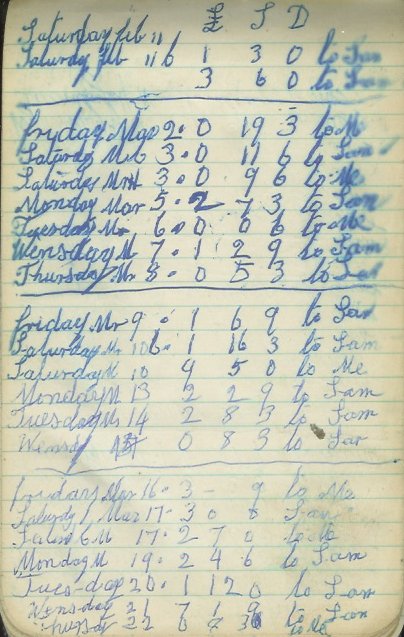 £ S D
Saturday Feb 11
Saturdy Feb 11 6 1 3 0 to Sam
3 6 0 to Sam
Friday Mar 2. 0 19 3 to Me
Saturday M 3. 0 11 6 to Sam
Saturday M 3. 0 9 6 to Me
Monday Mar 5. 2 7 3 to Sam
Tuesday Mr 6. 0 0 6 to Me
Wensday M 7. 1 2 9 to Sam
Thursday Mr 8. 0 5 3 to Sam
Friday Mr 9. 1 6 9 to Sam
Saturday Mr 10 1 16 3 to Sam
Saturday M 10 4 5 0 to Me
Monday M 13 2 2 9 to Sam
Tuesday Mr 14 2 8 3 to Sam
Wensd 0 8 3 to Sam
Friday Mar 16. 3 - 9 to Me
Saturdy Mar 17. 3 0 Sam
M 17. 2 7 0 to Me
Monday M 19. 2 4 6 to Sam
Tues-day 20. 1 12 0 to Sam
Wensday 21 7 1 9 to Sam
Thursday 22 0 7 to Me